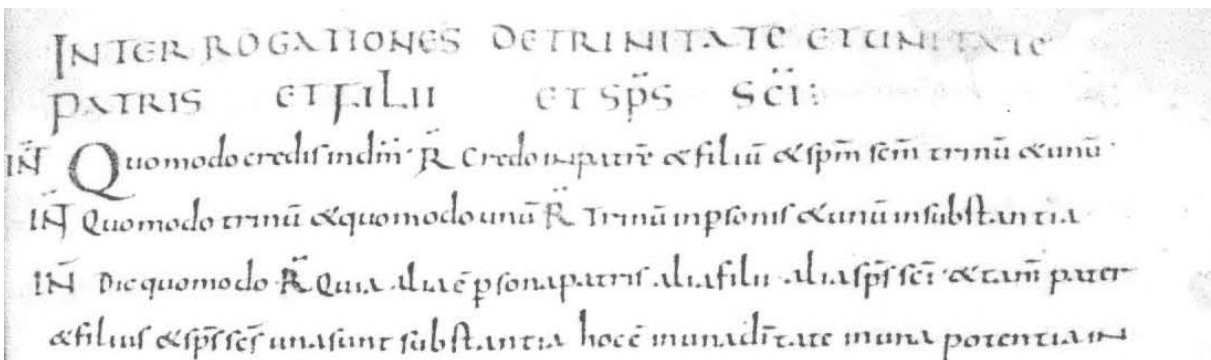 INTERROGATIONES DE TRINITATE ET UNITATE
PATRIS ET FILII ET SP̄S SC̄I:
IN̄T Quomodo credis in dm̄· R̄ Credo in patrē & filiū & sp̄m sc̄m trinū & unū·
IN̄T Quomodo trinū & quomodo unū R̄ Trinū in p̱sonis & unū in substantia·
IN̄ Dic quomodo· R̄ Quia alia ē p̱sona patris· alia filii· alia sp̄s sc̄i· & tam̄ pater
& filius & sp̄s sc̄s una sunt substantia hoc ē in una dīitate in una potentia in